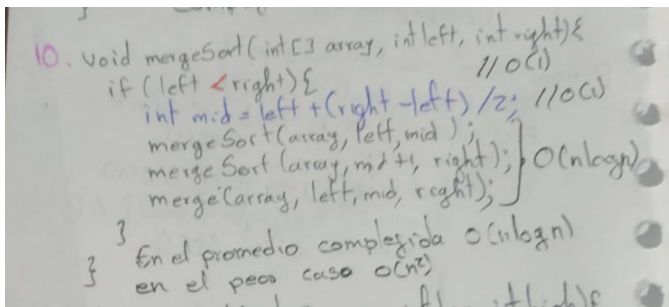 }
10. void mergeSort(int[] array, int left, int right){
if (left < right){ //O(1)
int mid = left + (right - left) /2; //O(1)
mergeSort(array, left, mid);
mergeSort (array, mid +1, right); } O(nlogn)
merge(array, left, mid, right);
}
} En el promedio complejida O(nlogn)
en el peor caso O(n²)